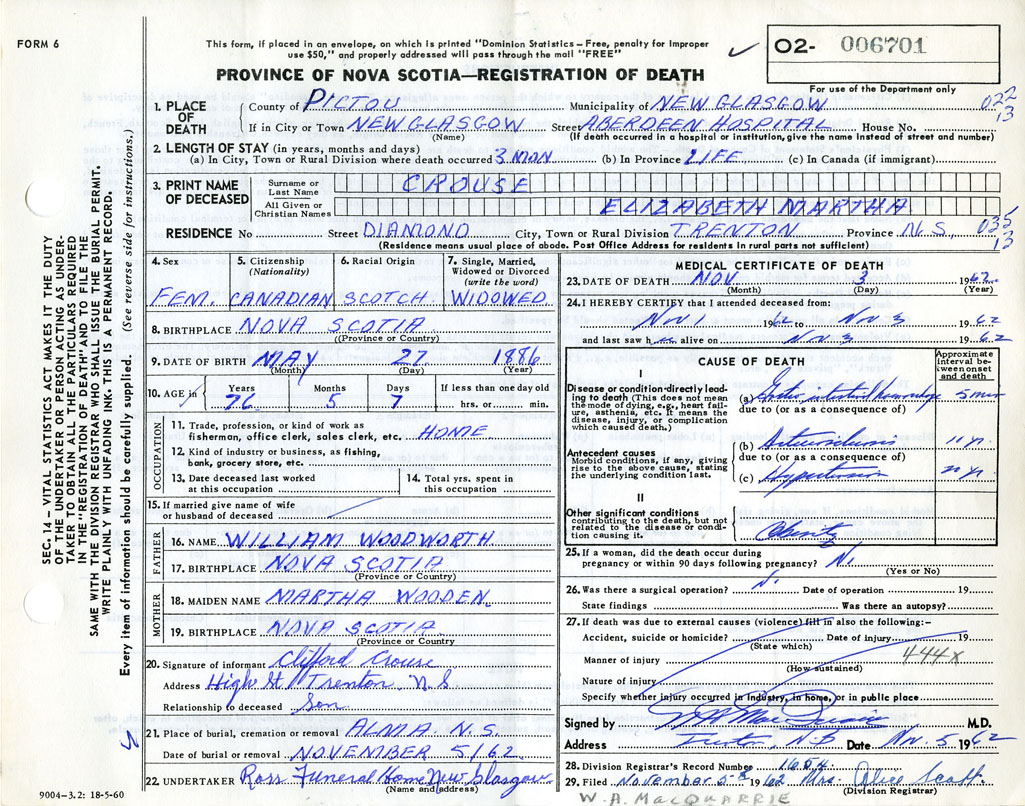 FORM 6
This form, if placed in an envelope, on which is printed "Dominion Statistics – Free, penalty for improper
use $50," and properly addressed will pass through the mail "FREE"
O2- 006701
PROVINCE OF NOVA SCOTIA—REGISTRATION OF DEATH
For use of the Department only
1. PLACE OF DEATH
County of PICTOU Municipality of NEW GLASGOW 022
If in City or Town NEW GLASGOW Street ABERDEEN HOSPITAL House No. 13
(Name) (If death occurred in a hospital or institution, give the name instead of street and number)
2. LENGTH OF STAY (in years, months and days)
(a) In City, Town or Rural Division where death occurred 3 MON (b) In Province LIFE (c) In Canada (if immigrant)
3. PRINT NAME OF DECEASED
Surname or Last Name CROUSE
All Given or Christian Names ELIZABETH MARTHA
RESIDENCE No Street DIAMOND City, Town or Rural Division TRENTON Province N.S. 035
13
(Residence means usual place of abode. Post Office Address for residents in rural parts not sufficient)
4. Sex
FEM.
5. Citizenship
(Nationality)
CANADIAN
6. Racial Origin
SCOTCH
7. Single, Married,
Widowed or Divorced
(write the word)
WIDOWED
8. BIRTHPLACE NOVA SCOTIA
(Province or Country)
9. DATE OF BIRTH MAY 27 1886
(Month) (Day) (Year)
10. AGE in
Years Months Days If less than one day old
76 5 7 hrs. or min.
OCCUPATION
11. Trade, profession, or kind of work as
fisherman, office clerk, sales clerk, etc. HOME
12. Kind of industry or business, as fishing,
bank, grocery store, etc.
13. Date deceased last worked
at this occupation
14. Total yrs. spent in
this occupation
15. If married give name of wife
or husband of deceased
FATHER
16. NAME WILLIAM WOODWORTH
17. BIRTHPLACE NOVA SCOTIA
(Province or Country)
MOTHER
18. MAIDEN NAME MARTHA WOODEN
19. BIRTHPLACE NOVA SCOTIA
(Province or Country
20. Signature of informant Clifford Crouse
Address High St Trenton N.S
Relationship to deceased Son
21. Place of burial, cremation or removal ALMA N.S.
Date of burial or removal NOVEMBER 5/62
22. UNDERTAKER Ross Funeral Home New Glasgow
(Name and address)
MEDICAL CERTIFICATE OF DEATH
23. DATE OF DEATH NOV. 3 1962
(Month) (Day) (Year)
24. I HEREBY CERTIFY that I attended deceased from:
Nov 1 1962 to Nov 3 1962
and last saw h alive on Nov 3 1962
CAUSE OF DEATH
Approximate
interval be-
tween onset
and death
I
Disease or condition directly lead-
ing to death (This does not mean
the mode of dying, e.g., heart fail-
ure, asthenia, etc. It means the
disease, injury, or complication
which caused death.)
(a) Gastro intestinal Hemorrhage 5 min
due to (or as a consequence of)
Antecedent causes
Morbid conditions, if any, giving
rise to the above cause, stating
the underlying condition last.
(b) Arteriosclerosis
due to (or as a consequence of)
(c) Hypertension
II
Other significant conditions
contributing to the death, but not
related to the disease or condi-
tion causing it.
Obesity
25. If a woman, did the death occur during
pregnancy or within 90 days following pregnancy? No.
(Yes or No)
26. Was there a surgical operation? No. Date of operation 19
State findings Was there an autopsy?
27. If death was due to external causes (violence) fill in also the following:-
Accident, suicide or homicide? Date of injury 19
(State which)
444X
Manner of injury
(How sustained)
Nature of injury
Specify whether injury occurred in industry, in home, or in public place
Signed by M.D.
Address Date Nov. 5 1962
28. Division Registrar's Record Number 1654
29. Filed November 5th 1962 Mrs. Alice Scott
(Division Registrar)
W. A. MACQUARRIE
9004-3.2: 18-5-60
SEC. 14 – VITAL STATISTICS ACT MAKES IT THE DUTY
OF THE UNDERTAKER OR PERSON ACTING AS UNDER-
TAKER TO OBTAIN ALL THE PARTICULARS REQUIRED
IN THE "REGISTRATION OF DEATH" AND TO FILE THE
SAME WITH THE DIVISION REGISTRAR WHO SHALL ISSUE THE BURIAL PERMIT.
WRITE PLAINLY WITH UNFADING INK. THIS IS A PERMANENT RECORD.
Every item of information should be carefully supplied. (See reverse side for instructions.)